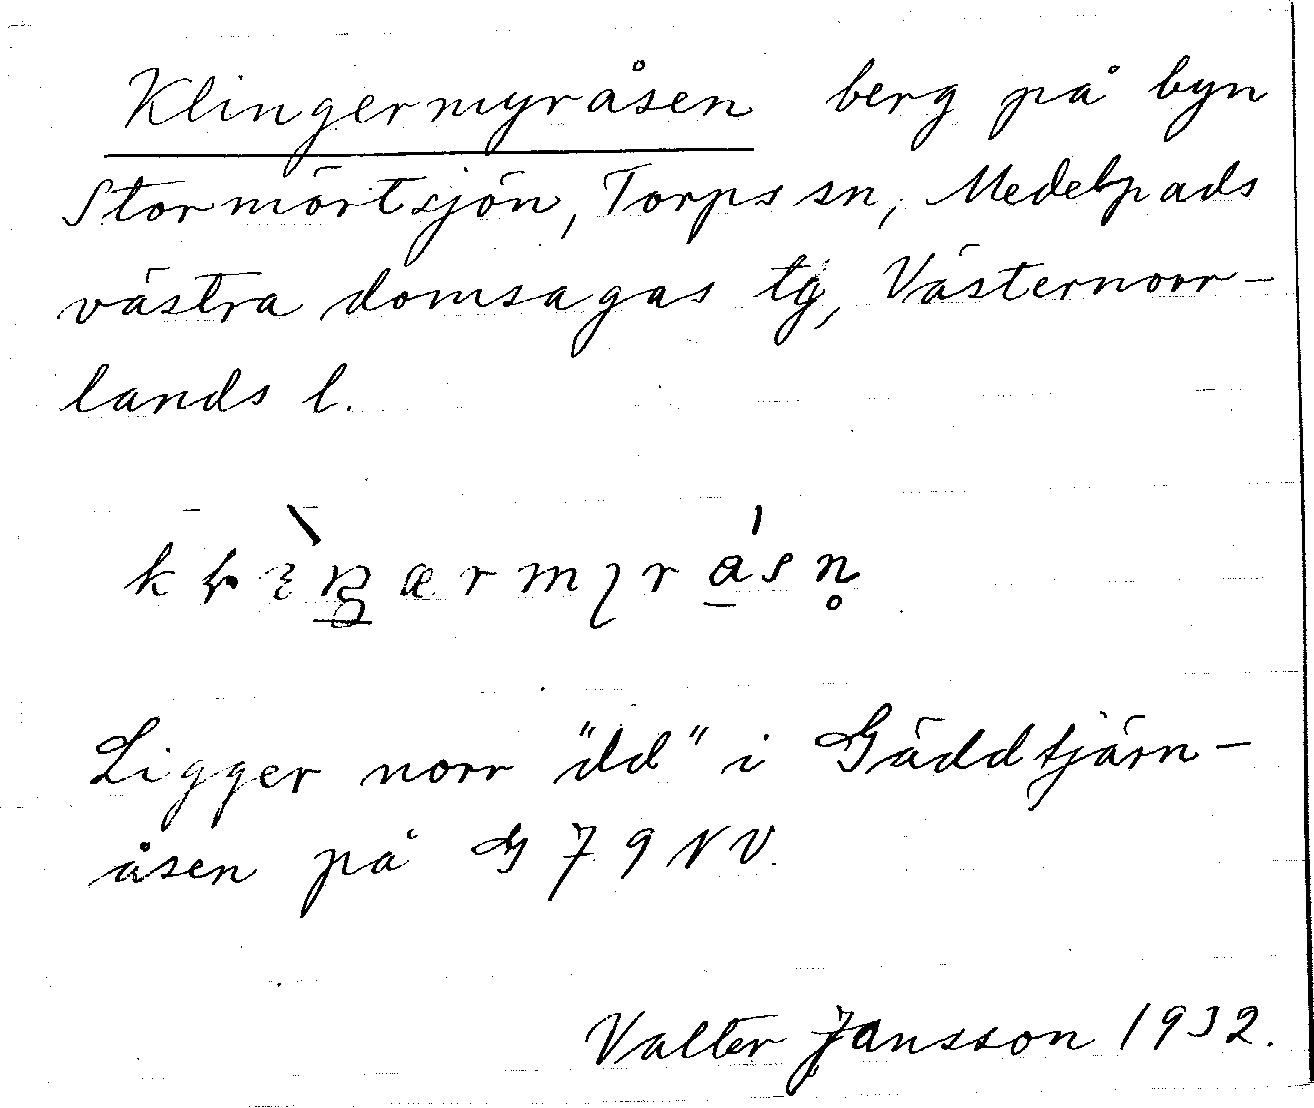 Klingermyråsen berg på byn
Stormörtsjön, Torps sn, Medelpads
västra domsagas tg, Västernorr-
lands l.
Ligger norr "dd" i Gäddtjärn-
åsen på G 79 NV.
Valter Jansson 1932.